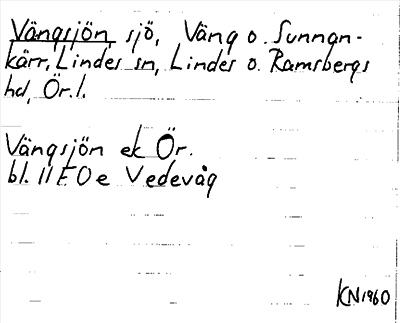 Vängsjön, sjö, Väng o. Sunnan-
kärr, Lindes sn, Lindes o. Ramsbergs
hd, Ör. l.
Vängsjön ek Ör.
bl. 11 F 0 e Vedevåg
KN 1960